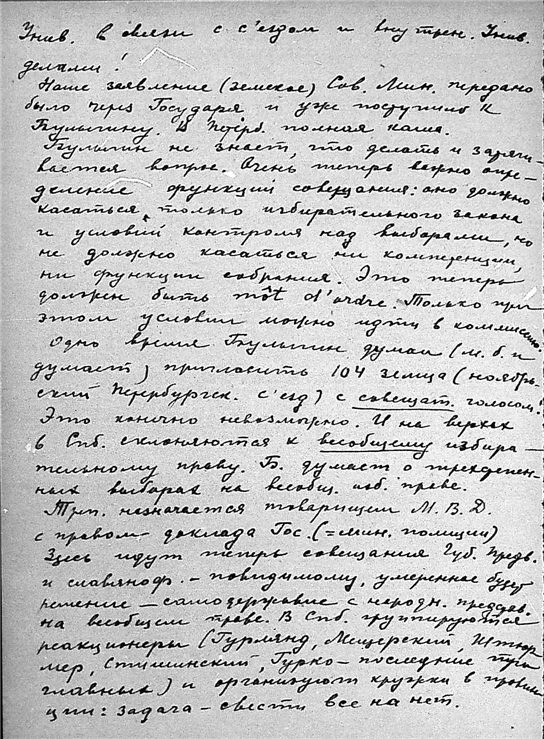 Унив. в связи с с'ездом и внутрен. Унив.
делами!
Наше заявление (земское) Сов. Мин. передано
было через Государя и уже поступило к
Булыгину. В Петерб. полная каша.
Булыгин не знает, что делать и затяги-
вается вопрос. Очень теперь важно опре-
деление функций совещания: оно должно
касаться только избирательного закона
и условий контроля над выборами, но
не должно касаться ни компетенции,
ни функции собрания. Это теперь
должен быть môt d'ordre. Только при
этом условии можно идти в коммиссию.
Одно время Булыгин думал (м.б. и
думает) пригласить 104 земца (ноябрь-
ский Петербургск. с'езд) с совещат. голосом.
Это конечно невозможно. И на верхах
в Спб. склоняются к всеобщему избира-
тельному праву. Б. думает о трехстепен-
ных выборах на всеобщ. изб. праве.
Треп. назначается товарищем М.В.Д.
с правом доклада Гос. (=мин. полиции)
Здесь идут теперь совещания Губ. Предв.
и славяноф. - повидимому, умеренное будет
решение - самодержавие с народн. представ.
на всеобщем праве. В Спб. группируются
реакционеры (Гурлянд, Мещерский, Штюр-
мер, Стишинский, Гурко - последние три
главных) и организуют кружки в провин-
ции: задача - свести все на нет.